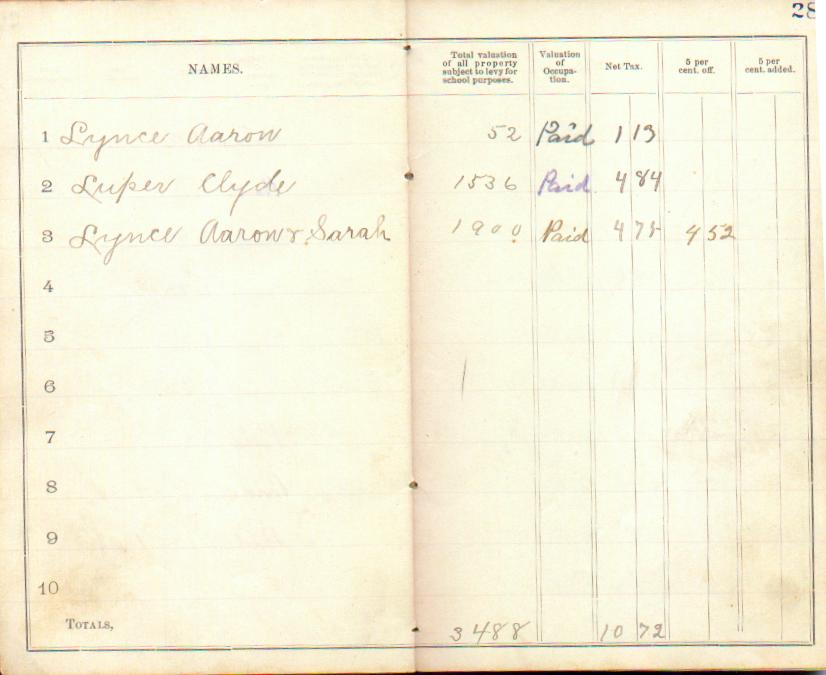 28
NAMES. Total valuation of all property subject to levy for school purposes. Valuation of Occupa-tion. Net Tax. 5 per cent. off. 5 per cent. added.
1 Lynce Aaron 52 Paid 1 13
2 Luper Clyde 1536 Paid 4 84
3 Lynce Aaron & Sarah 1900 Paid 4 75 4 52
4
5
6
7
8
9
10
TOTALS, 3488 10 72